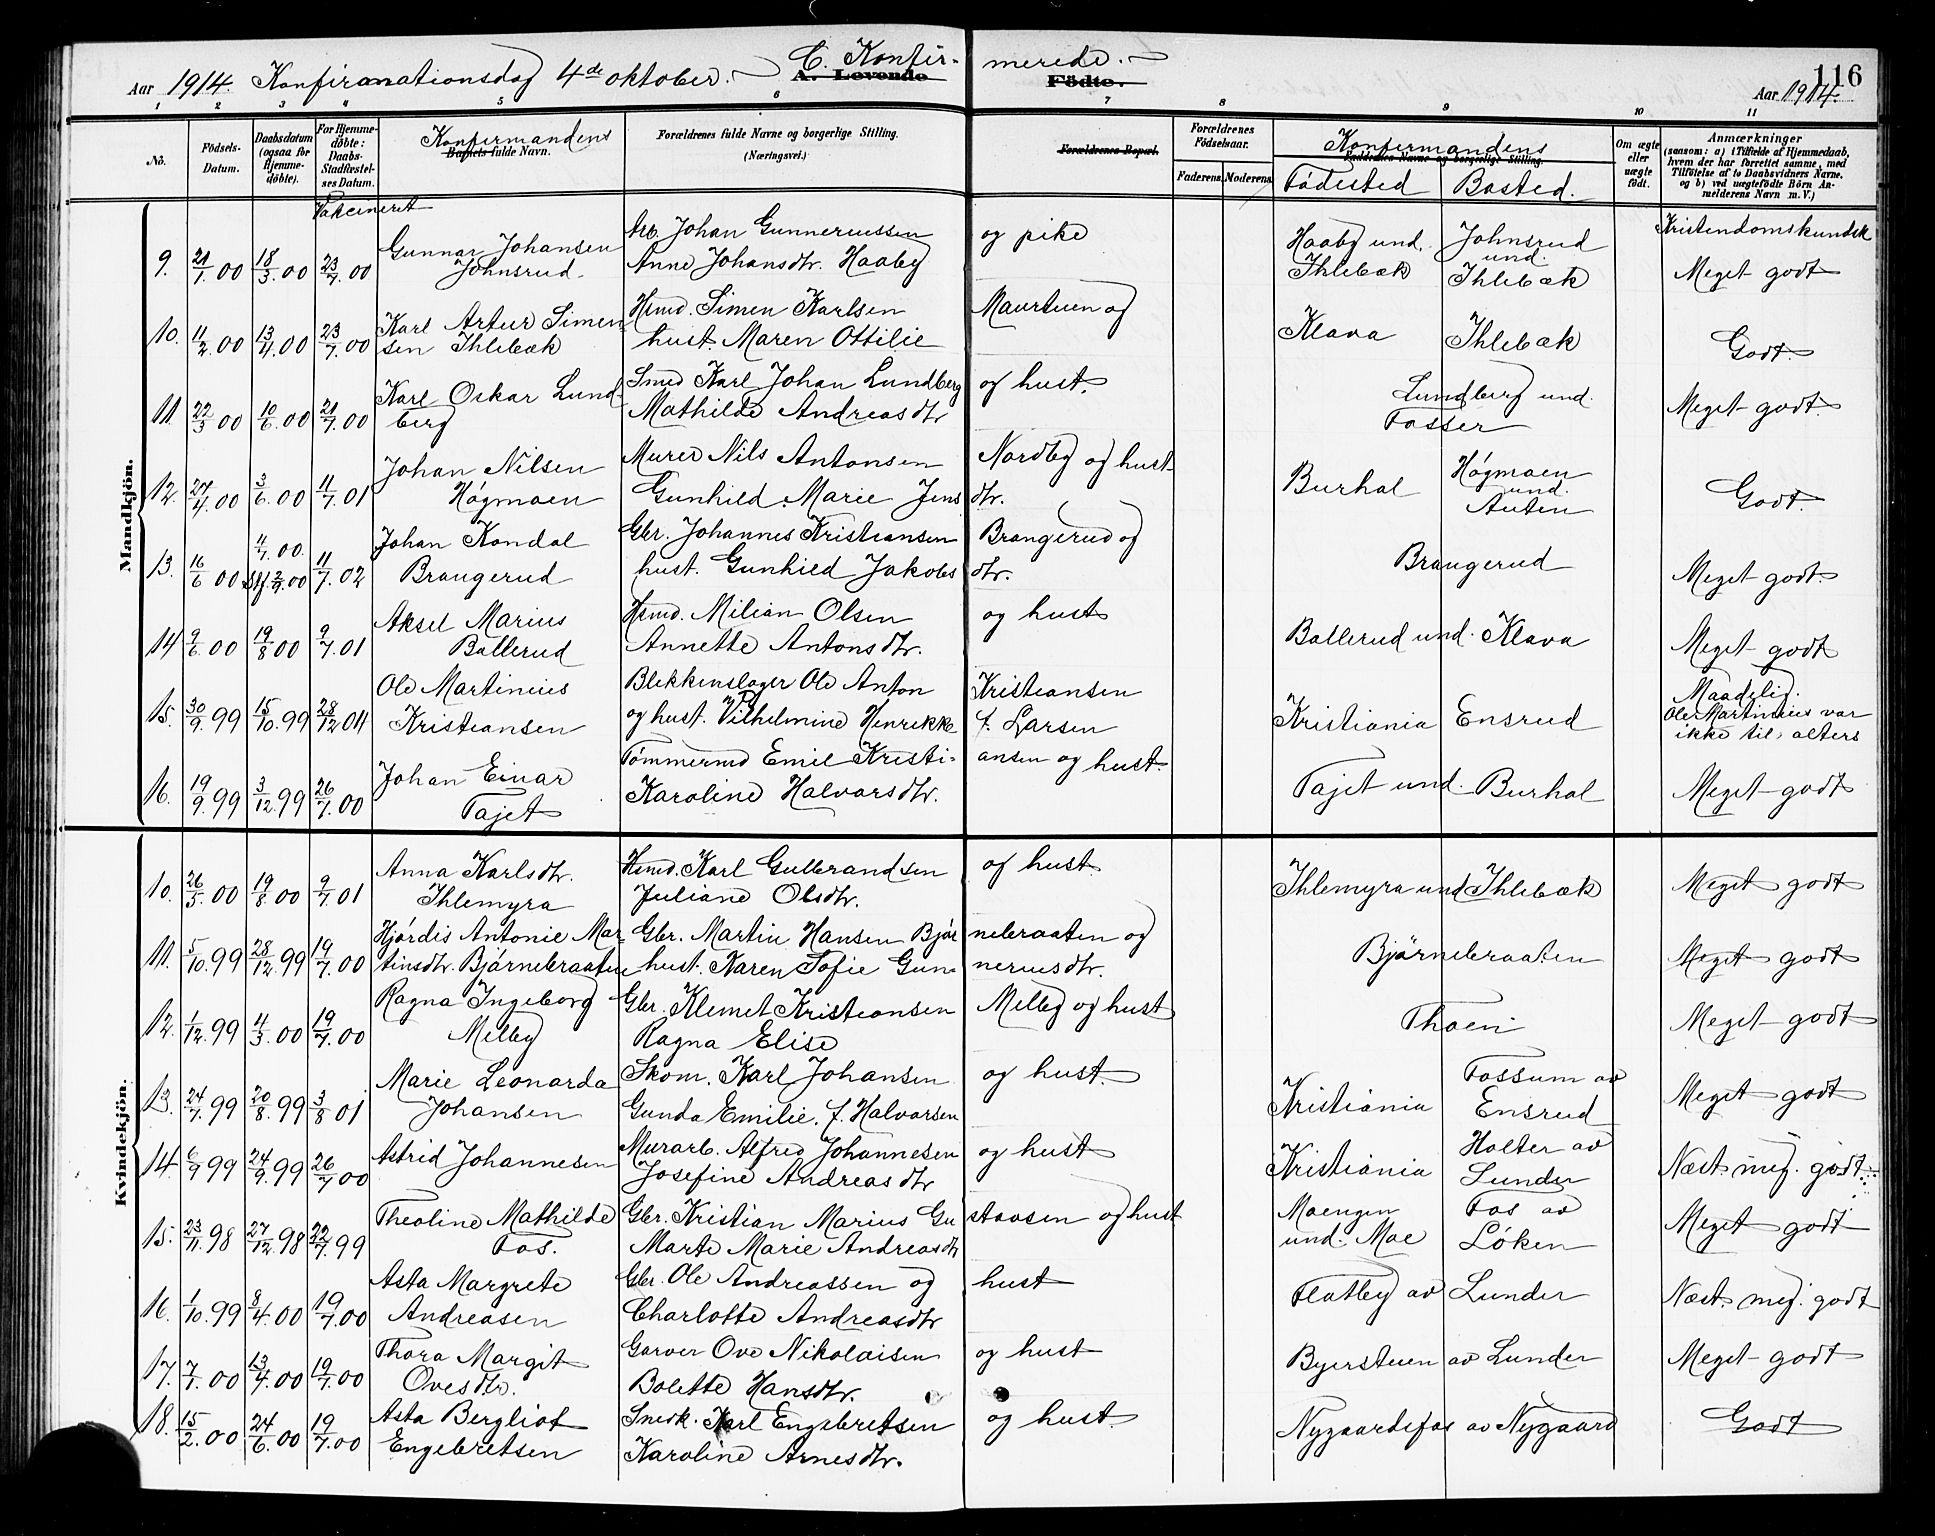 Aar 1914. Konfirmationsdag 4de oktober. C. Konfir- merede. Aar 1914. 116
A. Levende Födte.
1 2 3 4 5 6 7 8 9 10 11
No. Födsels-Datum. Daabsdatum (ogsaa for Hjemme-döbte). For Hjemme-döbte: Daabs-Stadfæstel-ses Datum. Konfirmandens Barnets fulde Navn. Forældrenes fulde Navne og borgerlige Stilling. (Næringsvei.) Forældrenes Bopæl. Forældrenes Födselsaar. Faderens. Moderens. Konfirmandens Faddernes Navne og borgerlige Stilling. Födested Bosted. Om ægte eller uægte födt. Anmærkninger (saasom: a) i Tilfælde af Hjemmedaab, hvem der har forrettet samme, med Tilföielse af to Daabsvidners Navne, og b) ved uægtefödte Börn An-melderens Navn m. V.)
Vakcineret
Mandkjön.
Kristendomskundsk
9. 21/1.00 18/3.00 23/7.00 Gunnar Johansen Arb. Johan Gunneriussen og pike Haaby und. Johnsrud
Johnsrud. Anne Johansdtr. Haaby Ihlebæk und. Ihlebæk Meget godt
10. 11/2.00 13/4.00 23/7.00 Karl Artur Simen- Hsmd. Simen Karlsen Maurtuen og Klava Ihlebæk Godt.
sen Ihlebæk hust Maren Ottilie
11. 22/3 00 10/6.00 21/7.00 Karl Oskar Lund- Smed Karl Johan Lundberg og hust. Lundberg und. Meget godt
berg Mathilde Andreasdtr Fosser
12. 27/4.00 3/6.00 11/7.01 Johan Nilsen Murer Nils Antonsen Nordby og hust Burhol Högmoen
Högmoen Gunhild Marie Jens dtr. und. Auten Godt.
13. 16/6 00 4/7.00. 11/7.02 Johan Kondal Gbr. Johannes Kristiansen Brangerud og Brangerud Meget godt.
Brangerud hust. Gunhild Jakobs dtr.
14 9/6.00 19/8 00 9/7.01 Aksel Marius Hsmd. Milian Olsen og hust Ballerud und. Klava Meget godt
Ballerud Annette Antonsdtr.
15. 30/9.99 15/10.99 28/12 04 Ole Martinius Blekkenslager Ole Anton Kristiansen Kristiania Ensrud Maadelig.
Kristiansen og hust. Vilhelmine Henrikke f. Larsen Ole Martinius var
ikke til alters
16. 19/9.99 3/12.99 26/7.00 Johan Einar Tömmermd Emil Kristi- ansen og hust. Tajet und. Burhol Meget godt
Tajet Karoline Halvorsdtr.
Kvindekjön.
10. 26/5.00 19/8.00 9/7.01 Anna Karlsdtr. Hsmd. Karl Gulbrandsen og hust Ihlemyra und Ihlebæk Meget godt
Ihlemyra Juliane Olsdtr.
11. 5/10.99 28/12.99 19/7.00 Hjördis Antonie Mar- Gbr. Martin Hansen Björ nebraaten og Björnebraaten Meget godt
tinsdtr. Björnebraaten hust. Karen Sofie Gun- neriusdtr.
12. 1/12.99 4/3.00 19/7.00 Ragna Ingeborg Gbr. Klemet Kristiansen Melby og hust Thoen Meget godt
Melby Ragna Elise
13. 24/7.99 20/8.99 3/8 01 Marie Leonarda Skom. Karl Johansen og hust. Kristiania Fossum av Meget godt
Johansen Gunda Emilie f. Halvorsen Ensrud
14. 6/9 99 24/9.99 26/7 00 Astrid Johannesen Murarb. Alfred Johannesen og hust Kristiania Holter av Næst. meg. godt.
Josefine Andreasdtr Lunder
15. 23/11.98 27/12.98 22/7.99 Theoline Mathilde Gbr. Kristian Marius Gu stavsen og hust Moengen Fos av Meget godt
Fos. Marte Marie Andreasdtr und. Moe Löken
16. 1/10.99 8/4.00 19/7.00 Asta Margrete Gbr. Ole Andreassen og hust Flatby av Lunder Næst. meg. godt
Andreasen Charlotte Andreasdtr
17. 7/1.00 13/4.00 19/7.00 Thora Margit Garver Ove Nikolaisen og hust Byerstuen av Lunder Meget godt
Ovesdtr. Bolette Hansdtr.
18. 15/2.00 24/6.00 19/7.00 Asta Bergliot Snedk. Karl Engebretsen og hust. Nygaardsfos av Nygaard Godt
Engebretsen Karoline Arnesdtr.